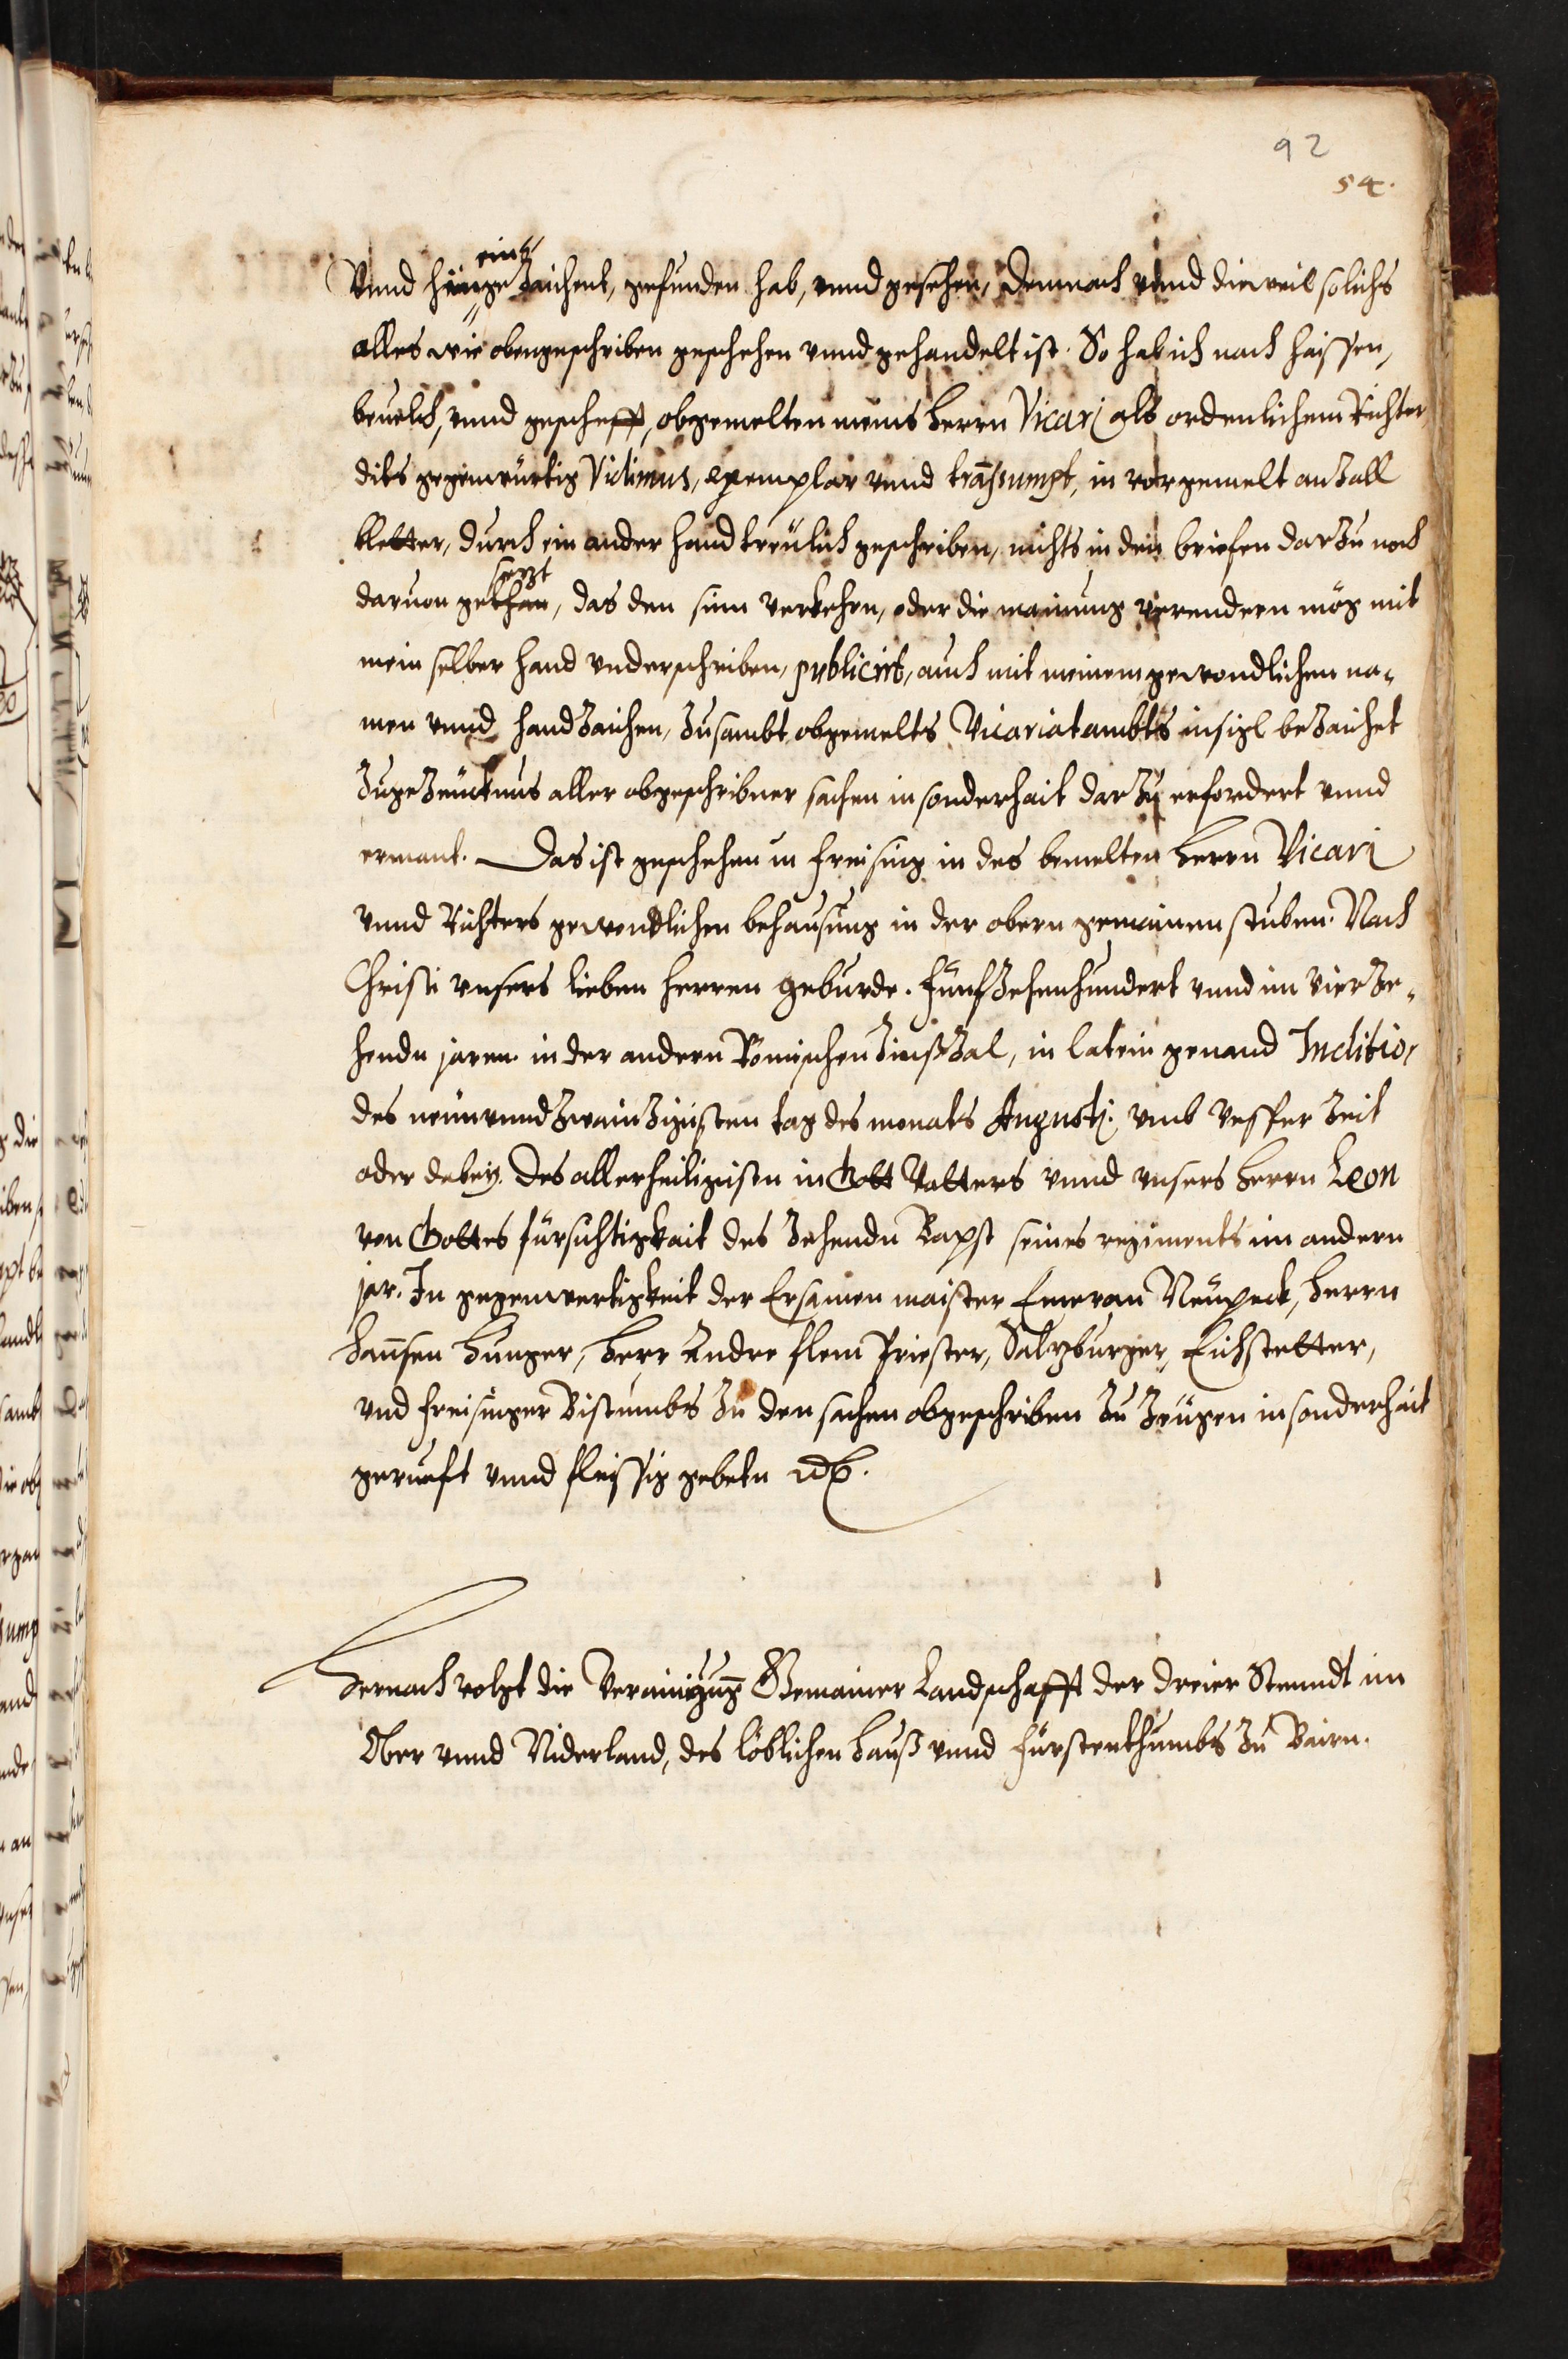 92
54.
einz
Vnnd hiengezaichent, gefunden hab, vnnd gesehen, Demnach vnnd dieweil solichs
alles wie obengeschriben geschehen vnnd gehandelt ist. So hab ich nach haissen,
beuelch, vnnd geschefft, obgemelten meins herrn Vicarj als ordenlichem Richter
dits gegenwürtig Vidimus, exemplar vnnd tranßumpt, in vorgemelt anzall
bletter, durch ein ander hand treulich geschriben, nichts in den briefen darzu noch
sezt
daruon gethan, das den sinn verkehrn, oder die mainung verendern mög mit
mein selber hand vnderschriben, publicirt, auch mit meinem gewondlichen na-
men vnnd handzaichen, zusambt obgemelts Vicariatambts insigl bezaichet
zugezeucknus aller obgeschribner sachen insonderhait darzu erfordert vnnd
ermant. Das ist geschehen in freising in des bemelten herrn Vicari
vnnd Richters gewondlichen behausung in der obern gemainen stuben. Nach
Christi vnsers lieben herren geburde. Fünfzehenhundert vnnd im vierze-
henden jaren in der andern Römischen Zinßzal, in latein genand Inditio,
des neunvnndzwainzigisten tag des monats Augustj. vmb vesper zeit
oder dabey. Des allerheiligisten in Gott Vatters vnnd vnsers herrn Leon
von Gottes fürsichtigkait des zehenden Bapst seines regiments im andern
jar. In gegenwertigkeit der Ersamen maister Emeran Neupeck, herrn
hannsen hunger, herr Andre flem Priester, Saltzburger, Eichstetter,
vnd freisinger Bistumbs zu den sachen obgeschriben zu zeugen insonderhait
gerueft vnnd fleissig gebeten
Hernach volgt die Verainigung Gemainer Landschafft der dreier Stenndt im
Ober vnnd Niderland, des löblichen hauß vnnd fürstenthumbs zu Bairn.